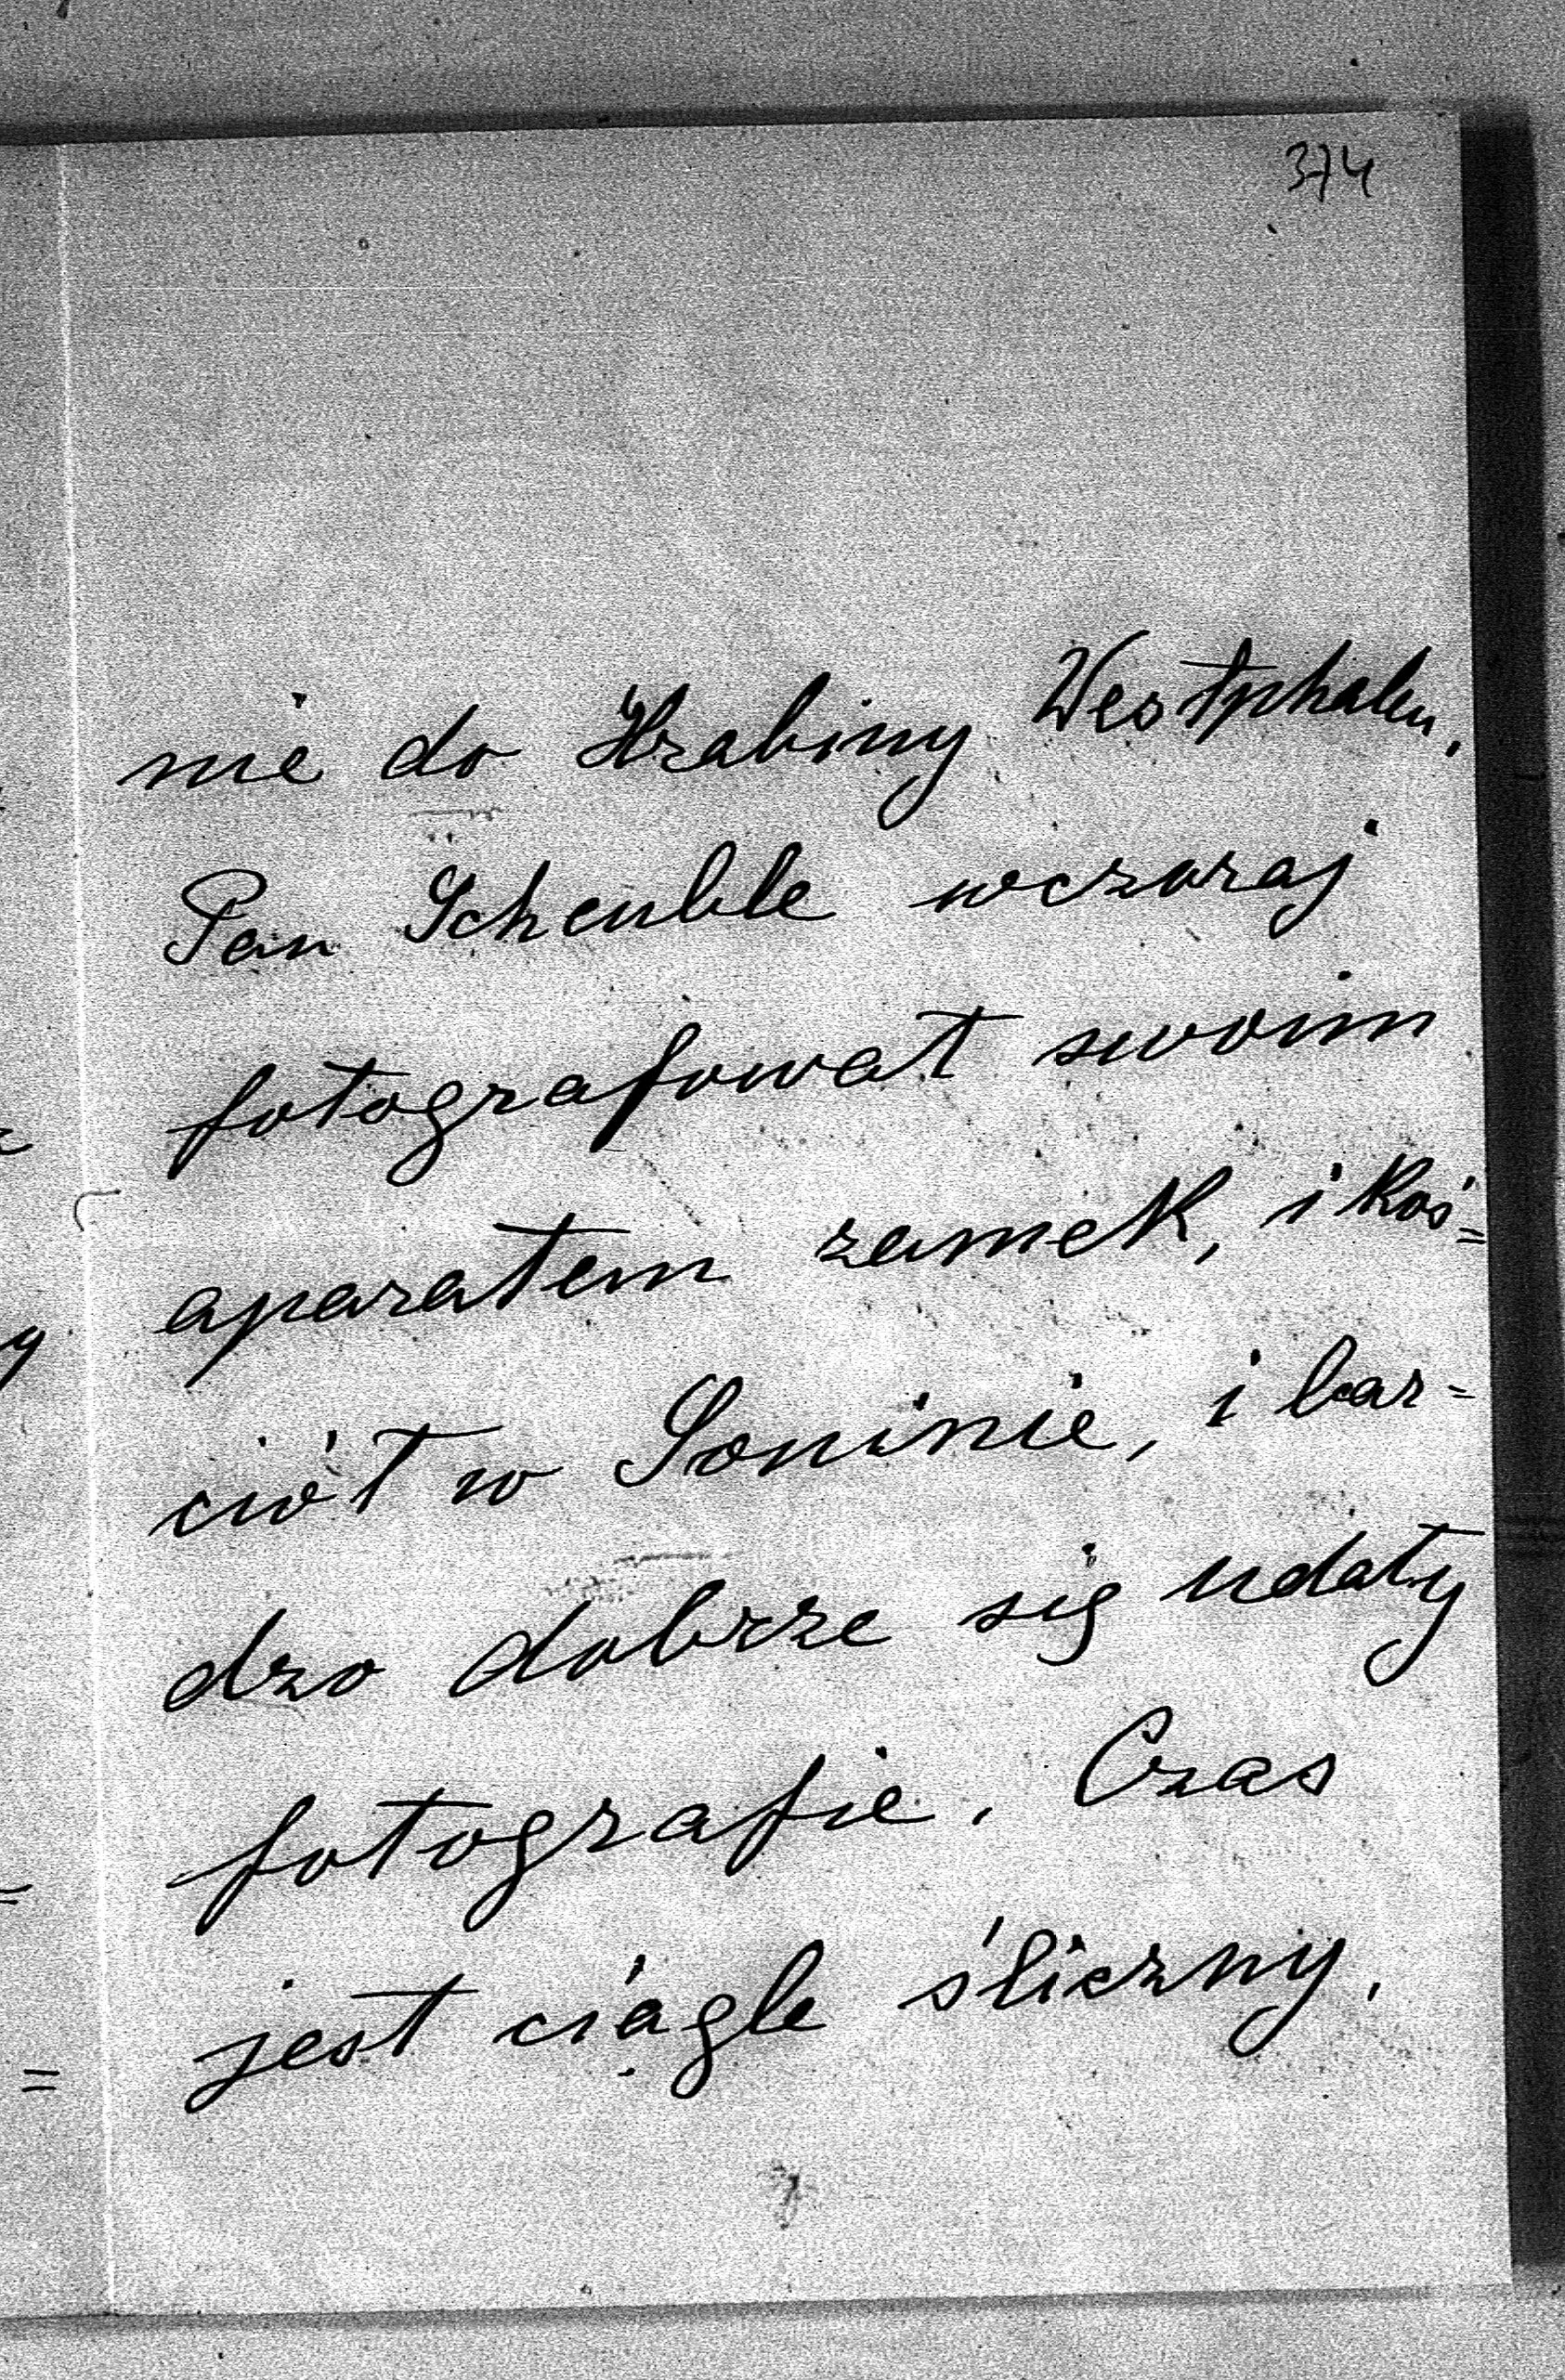 374
nie do Hrabiny Westphalen.
Pan Scheuble wczoraj
fotografował swoim
aparatem zamek, i koś=
ciół w Soninie, i bar=
dzo dobrze się udały
fotografie. Czas
jest ciągle śliczny.